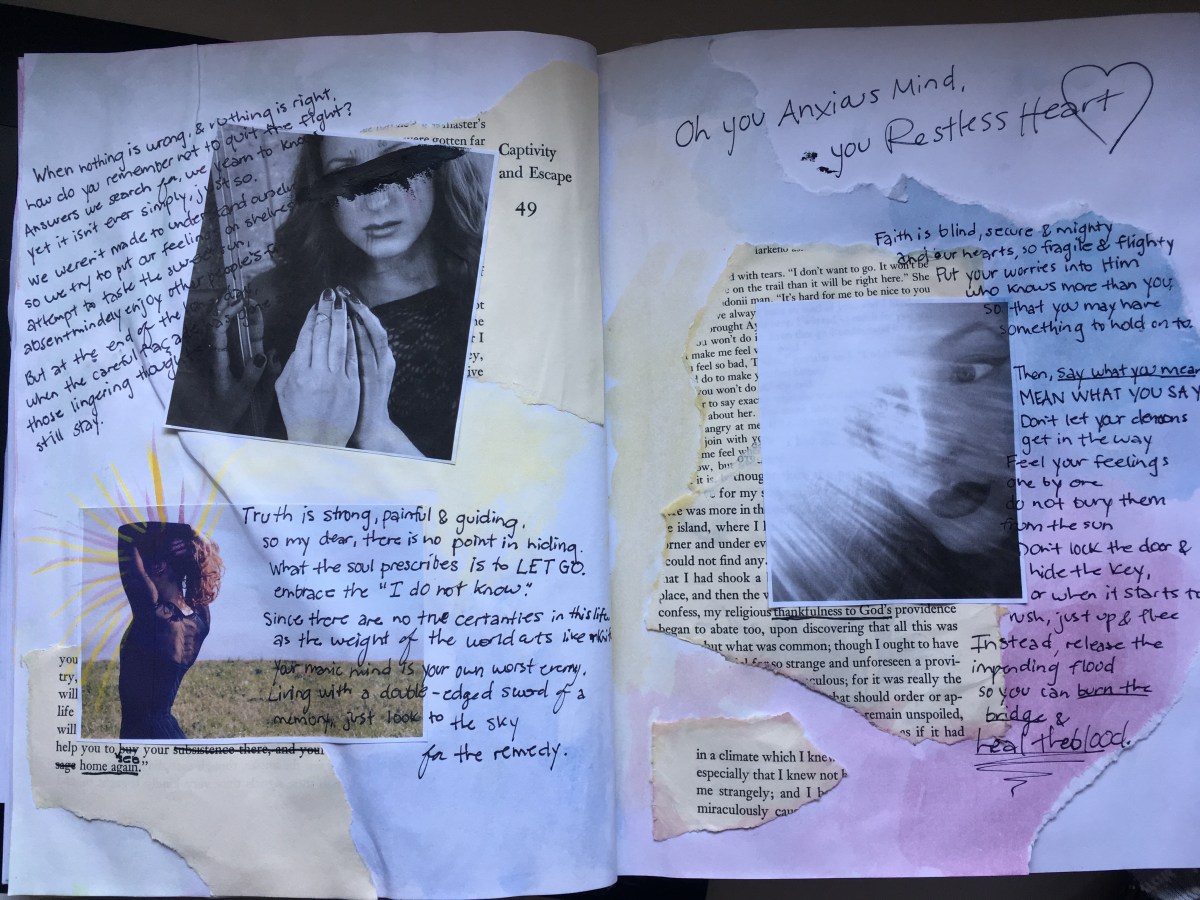 When nothing is wrong, & nothing is right,
how do you remember not to quit the fight?
Answers we search for, we yearn to know
yet it isn't ever simply, just so.
We weren't made to understand
so we try to put our feelings on shelves
attempt to taste the sweet
absentmindedly enjoy other people's
But at the end of the
when the careful
those lingering
still stay.
master's
were gotten far
Captivity
and Escape
49
Truth is strong, painful & guiding.
so my dear, there is no point in hiding.
What the soul prescribes is to LET GO.
embrace the "I do not know".
Since there are no true certanties in this life
as the weight of the world cuts like
your manic mind is your own worst enemy.
Living with a double-edged sword of a
memory, just look to the sky
for the remedy.
you
try,
will
life
will
help you to buy your subsistence there, and your
see
sage home again."
Oh you Anxious Mind,
you Restless Heart
Faith is blind, secure & mighty
and our hearts, so fragile & flighty
Put your worries into Him
who knows more than you
so that you may have
something to hold on to.
Then, say what you mean
MEAN WHAT YOU SAY
Don't let your demons
get in the way
Feel your feelings
one by one
do not bury them
from the sun
Don't lock the door &
hide the key,
or when it starts to
rush, just up & flee
Instead, release the
impending flood
so you can burn the
bridge &
heal the blood.
d with tears. "I don't want to go. It won't be
e on the trail than it will be right here." She
donii man. "It's hard for me to be nice to you
ve alway
brought Ay
u won't do i
make me feel
feel so bad, T
do to make y
you won't do
r to say exac
about her.
angry at me
join with yo
me feel w
ow, but
it is
thoug
for my s
was more in th
e island, where I
rner and under ev
could not find any.
hat I had shook a
place, and then the
confess, my religious thankfulness to God's providence
began to abate too, upon discovering that all this was
but what was common; though I ought to have
so strange and unforeseen a provi-
culous; for it was really the
that should order or ap-
remain unspoiled,
as if it had
in a climate which I knew
especially that I knew not
me strangely; and I
miraculously